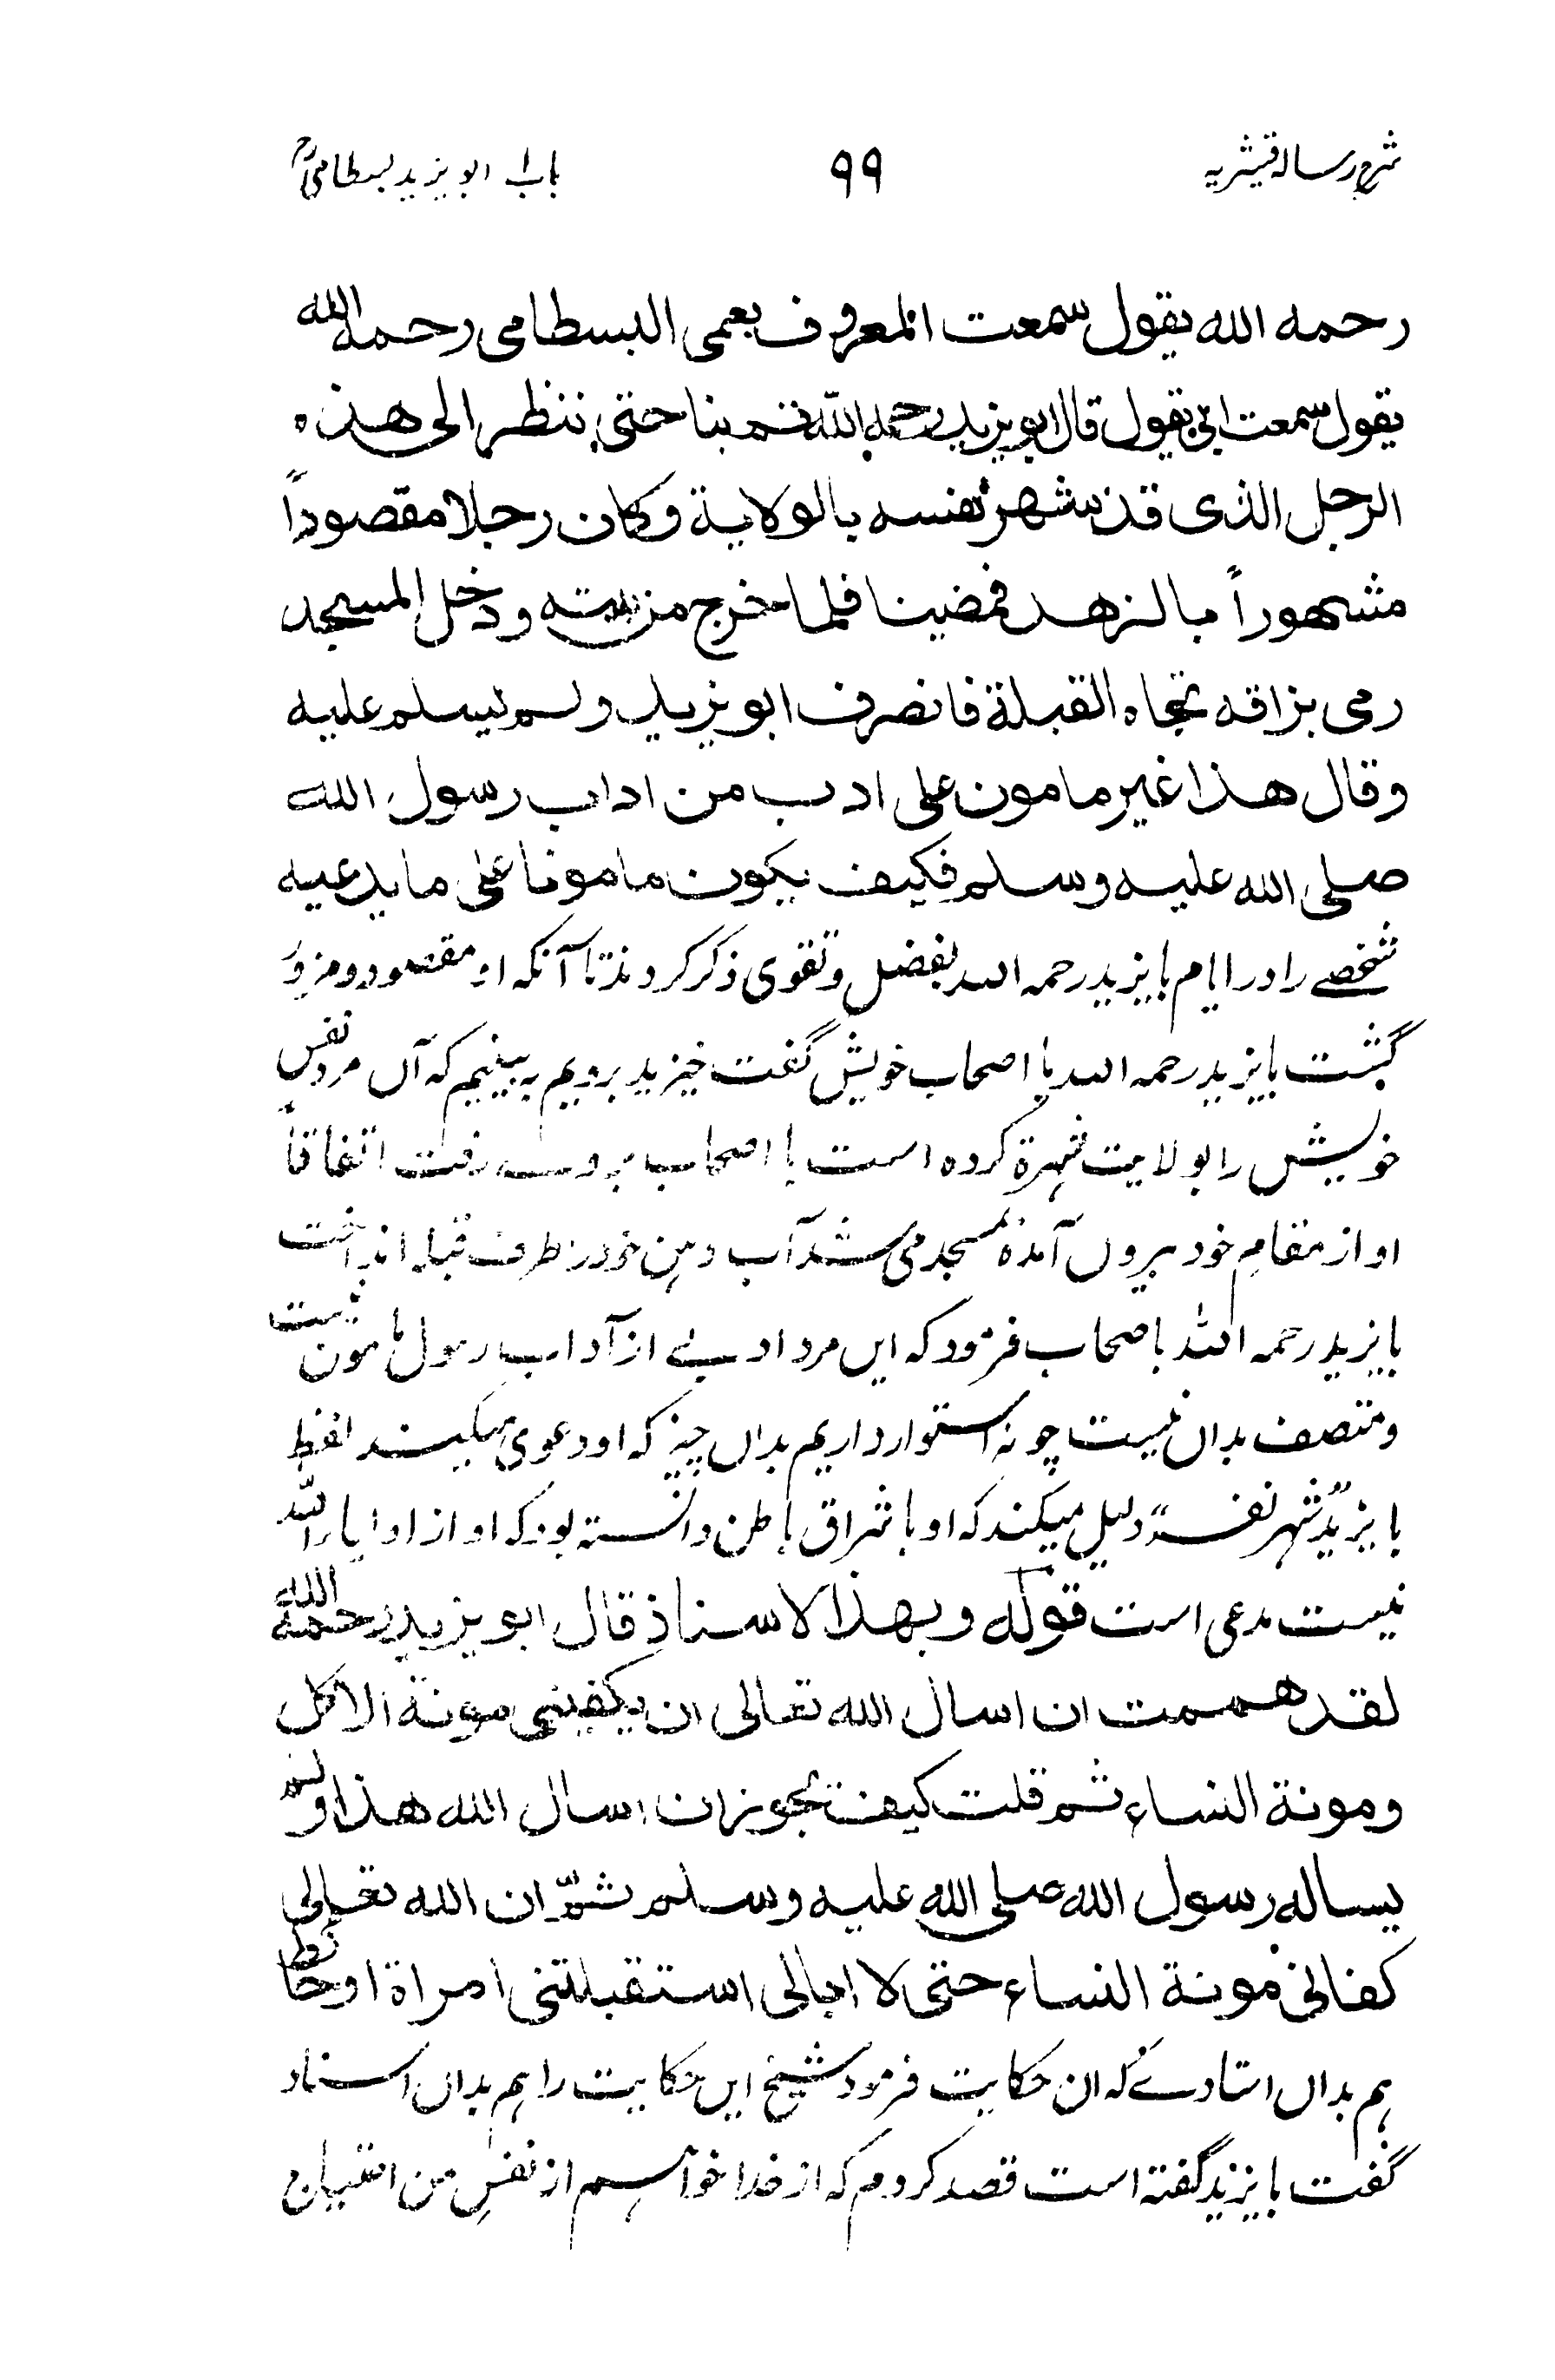 شرح رسالہ قشیریہ ۹۹ باب ابو یزید بسطامیؒ
رحمه الله يقول سمعت المعروف بعمى البسطامى رحمه الله
يقول سمعت ابى يقول قال ابو يزيد رحمه الله قم بنا حتى ننظر الى هذه
الرجل الذى قد شهر نفسه بالولاية وكان رجلا مقصوداً
مشهوراً بالزهد فمضينا فلما خرج من بيته ودخل المسجد
رمى بزاقه تجاه القبلة فانصرف ابو يزيد ولم يسلم عليه
وقال هذا غير مامون على ادب من اداب رسول الله
صلى الله عليه وسلم فكيف يكون مامونا على ما يدعيه
شخصے را در ایام بایزید رحمہ اللہ بفضل و تقوی ذکر کردند تا آنکہ او مقصود و مزور
گشت بایزید رحمہ اللہ با اصحاب خویش گفت خیزید برویم بہ بینیم کہ آں مرد نفس
خویش را بولایت شہرۃ کردہ است با اصحاب بروے رفت اتفاقاً
او از مقام خود بیروں آمدہ بمسجد می شد آب دہن خود در طرف قبلہ انداخت
بایزید رحمہ اللہ باصحاب فرمود کہ ایں مرد ادبے از آداب رسول مامون نیست
و متصف بداں نیست چونہ استوار داریم بداں چیز کہ او دعوی میکند لفظ
بایزیدؒ شہر نفسہ دلیل میکند کہ او باشراق باطن دانستہ بود کہ او از اولیاء اللہ
نیست مدعی است قوله وبهذا لاسناذ قال ابو يزيد رحمه الله
لقد هممت ان اسال الله تعالى ان يكفينى مونة الاكل
ومونة النساء ثم قلت كيف يجوز ان اسال الله هذا ولم
يساله رسول الله صلى الله عليه وسلم ثمّ ان الله تعالى
كفانى مونة النساء حتى لا ابالى استقبلتنى امراة او حائط
ہم بداں استادے کہ ان حکایت فرمود شیخ ایں حکایت را ہم بداں اسناد
گفت بایزید گفتہ است قصد کردم کہ از خدا خواہم از نفسِ من اشتیاق